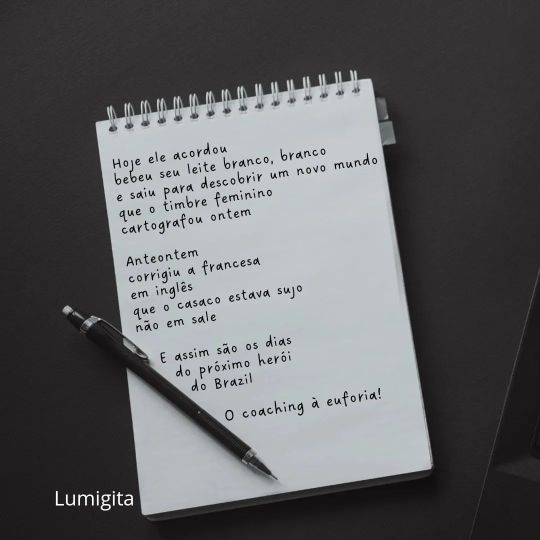 Hoje ele acordou
bebeu seu leite branco, branco
e saiu para descobrir um novo mundo
que o timbre feminino
cartografou ontem
Anteontem
corrigiu a francesa
em inglês
que o casaco estava sujo
não em sale
E assim são os dias
do próximo herói
do Brazil
O coaching à euforia!
Lumigita